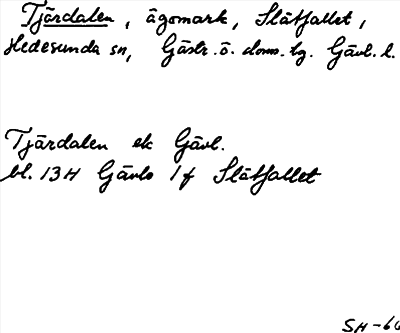 Tjärdalen, ägomark, Slåtfallet,
Hedesunda sn, Gästr. ö. doms. tg. Gävl. l.
Tjärdalen ek Gävl.
bl. 13H Gävle 1f Slåtfallet
SH-60